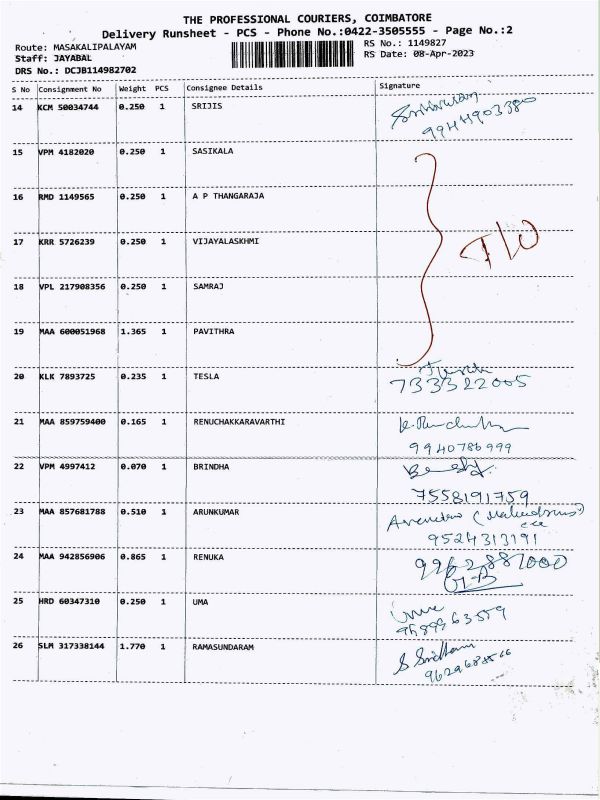 THE PROFESSIONAL COURIERS, COIMBATORE
Delivery Runsheet - PCS - Phone No.:0422-3505555 - Page No.:2
Route: MASAKALIPALAYAM RS No.: 1149827
Staff: JAYABAL RS Date: 08-Apr-2023
DRS No.: DCJB114982702
S No Consignment No Weight PCS Consignee Details Signature
14 KCM 50034744 0.250 1 SRIJIS
9944903380
15 VPM 4182020 0.250 1 SASIKALA
16 RMD 1149565 0.250 1 A P THANGARAJA
17 KRR 5726239 0.250 1 VIJAYALASKHMI
18 VPL 217908356 0.250 1 SAMRAJ
19 MAA 600051968 1.365 1 PAVITHRA
20 KLK 7893725 0.235 1 TESLA
733322005
21 MAA 859759400 0.165 1 RENUCHAKKARAVARTHI
9940786999
22 VPM 4997412 0.070 1 BRINDHA
7558191759
23 MAA 857681788 0.510 1 ARUNKUMAR
9524313191
24 MAA 942856906 0.865 1 RENUKA
25 HRD 60347310 0.250 1 UMA
26 SLM 317338144 1.770 1 RAMASUNDARAM